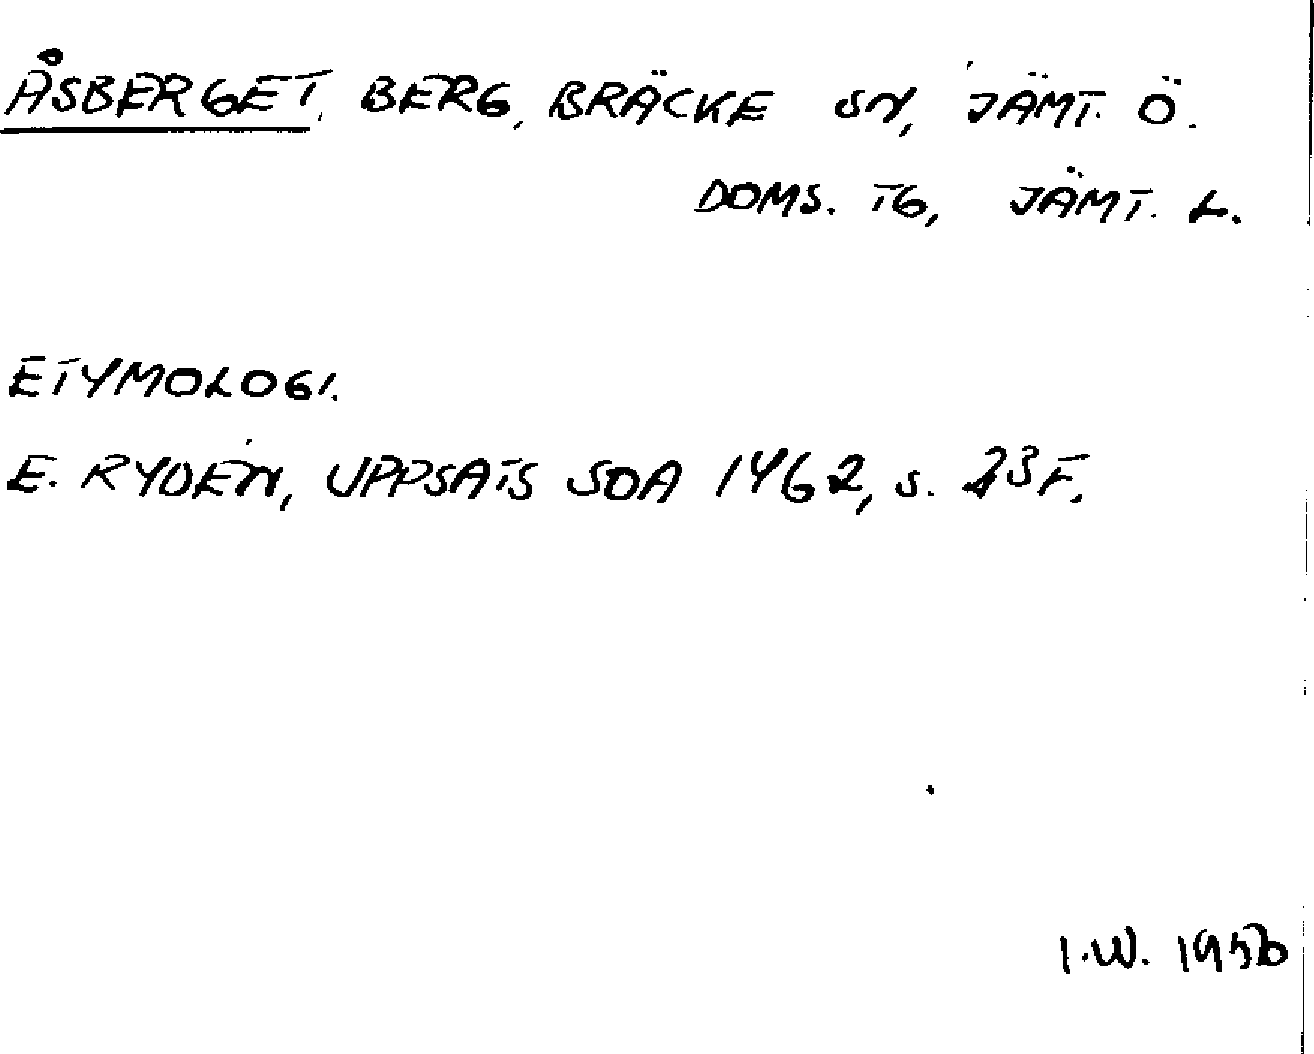 ÅSBERGET, BERG, BRÄCKE SN, JÄMT. Ö.
DOMS. TG, JÄMT. L.
ETYMOLOGI.
E. RYDÉN, UPPSATS SOA 1462, S. 23 F.
I.W. 1956